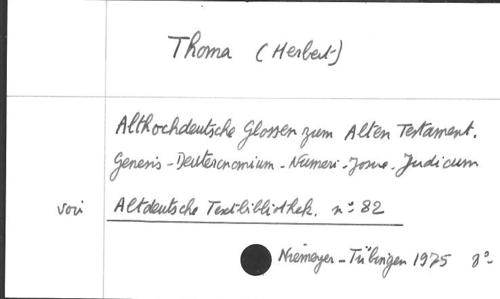 Thoma (Herbert)
Althochdeutsche Glossen zum Alten Testament.
Genesis - Deuteronomium - Numeri - Josue - Judicum
voir Altdeutsche Textbibliothek. nº 82
Niemeyer - Tübingen 1975 8º